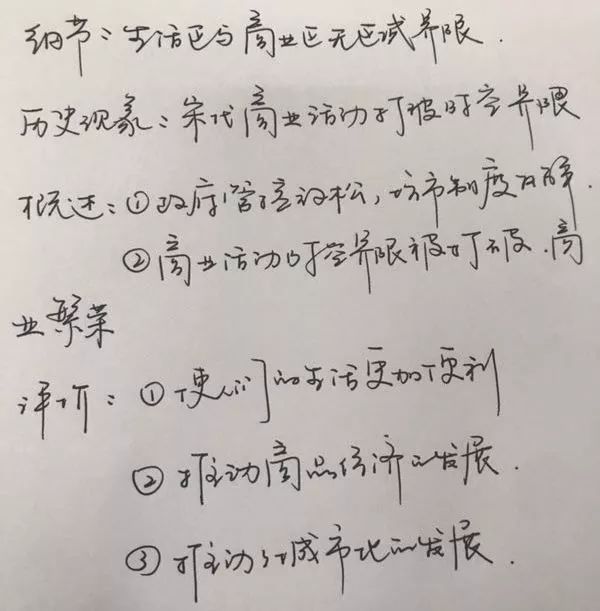 细节：生活区与商业区无区域界限.
历史现象：宋代商业活动打破时空界限
概述：①政府管控放松，坊市制度瓦解.
②商业活动时空界限被打破.商
业繁荣
评价：①使人们的生活更加便利
②推动商品经济的发展.
③推动了城市化的发展.